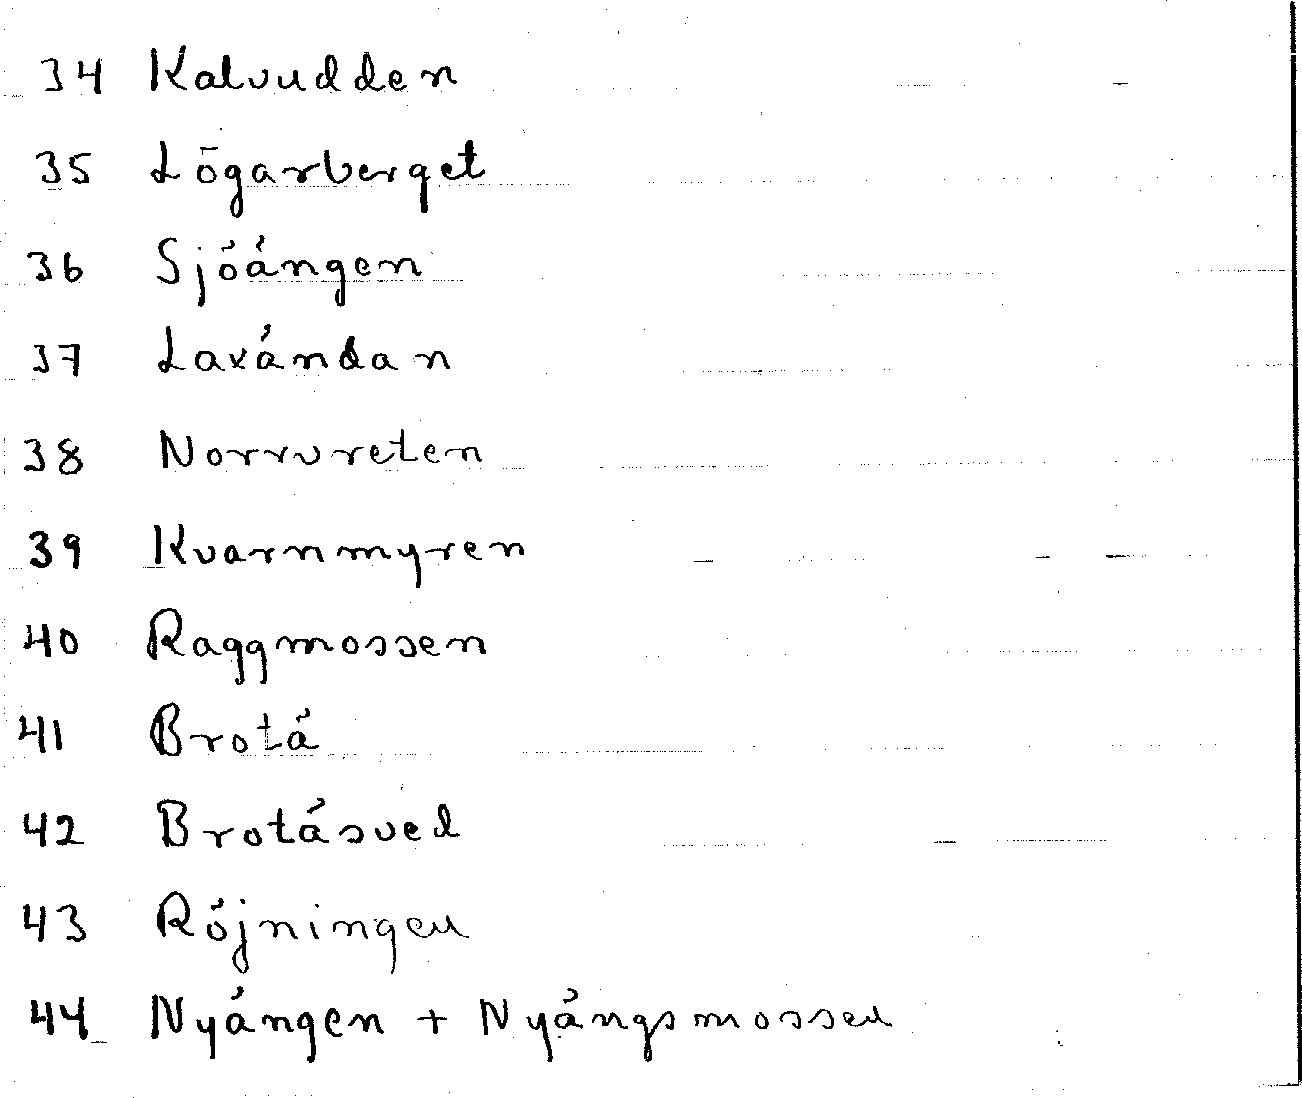 34 Kalvudden
35 Lögarberget
36 Sjöängen
37 Laxändan
38 Norrvreten
39 Kvarnmyren
40 Raggmossen
41 Brotä
42 Brotäsved
43 Röjningen
44 Nyängen + Nyängsmossen